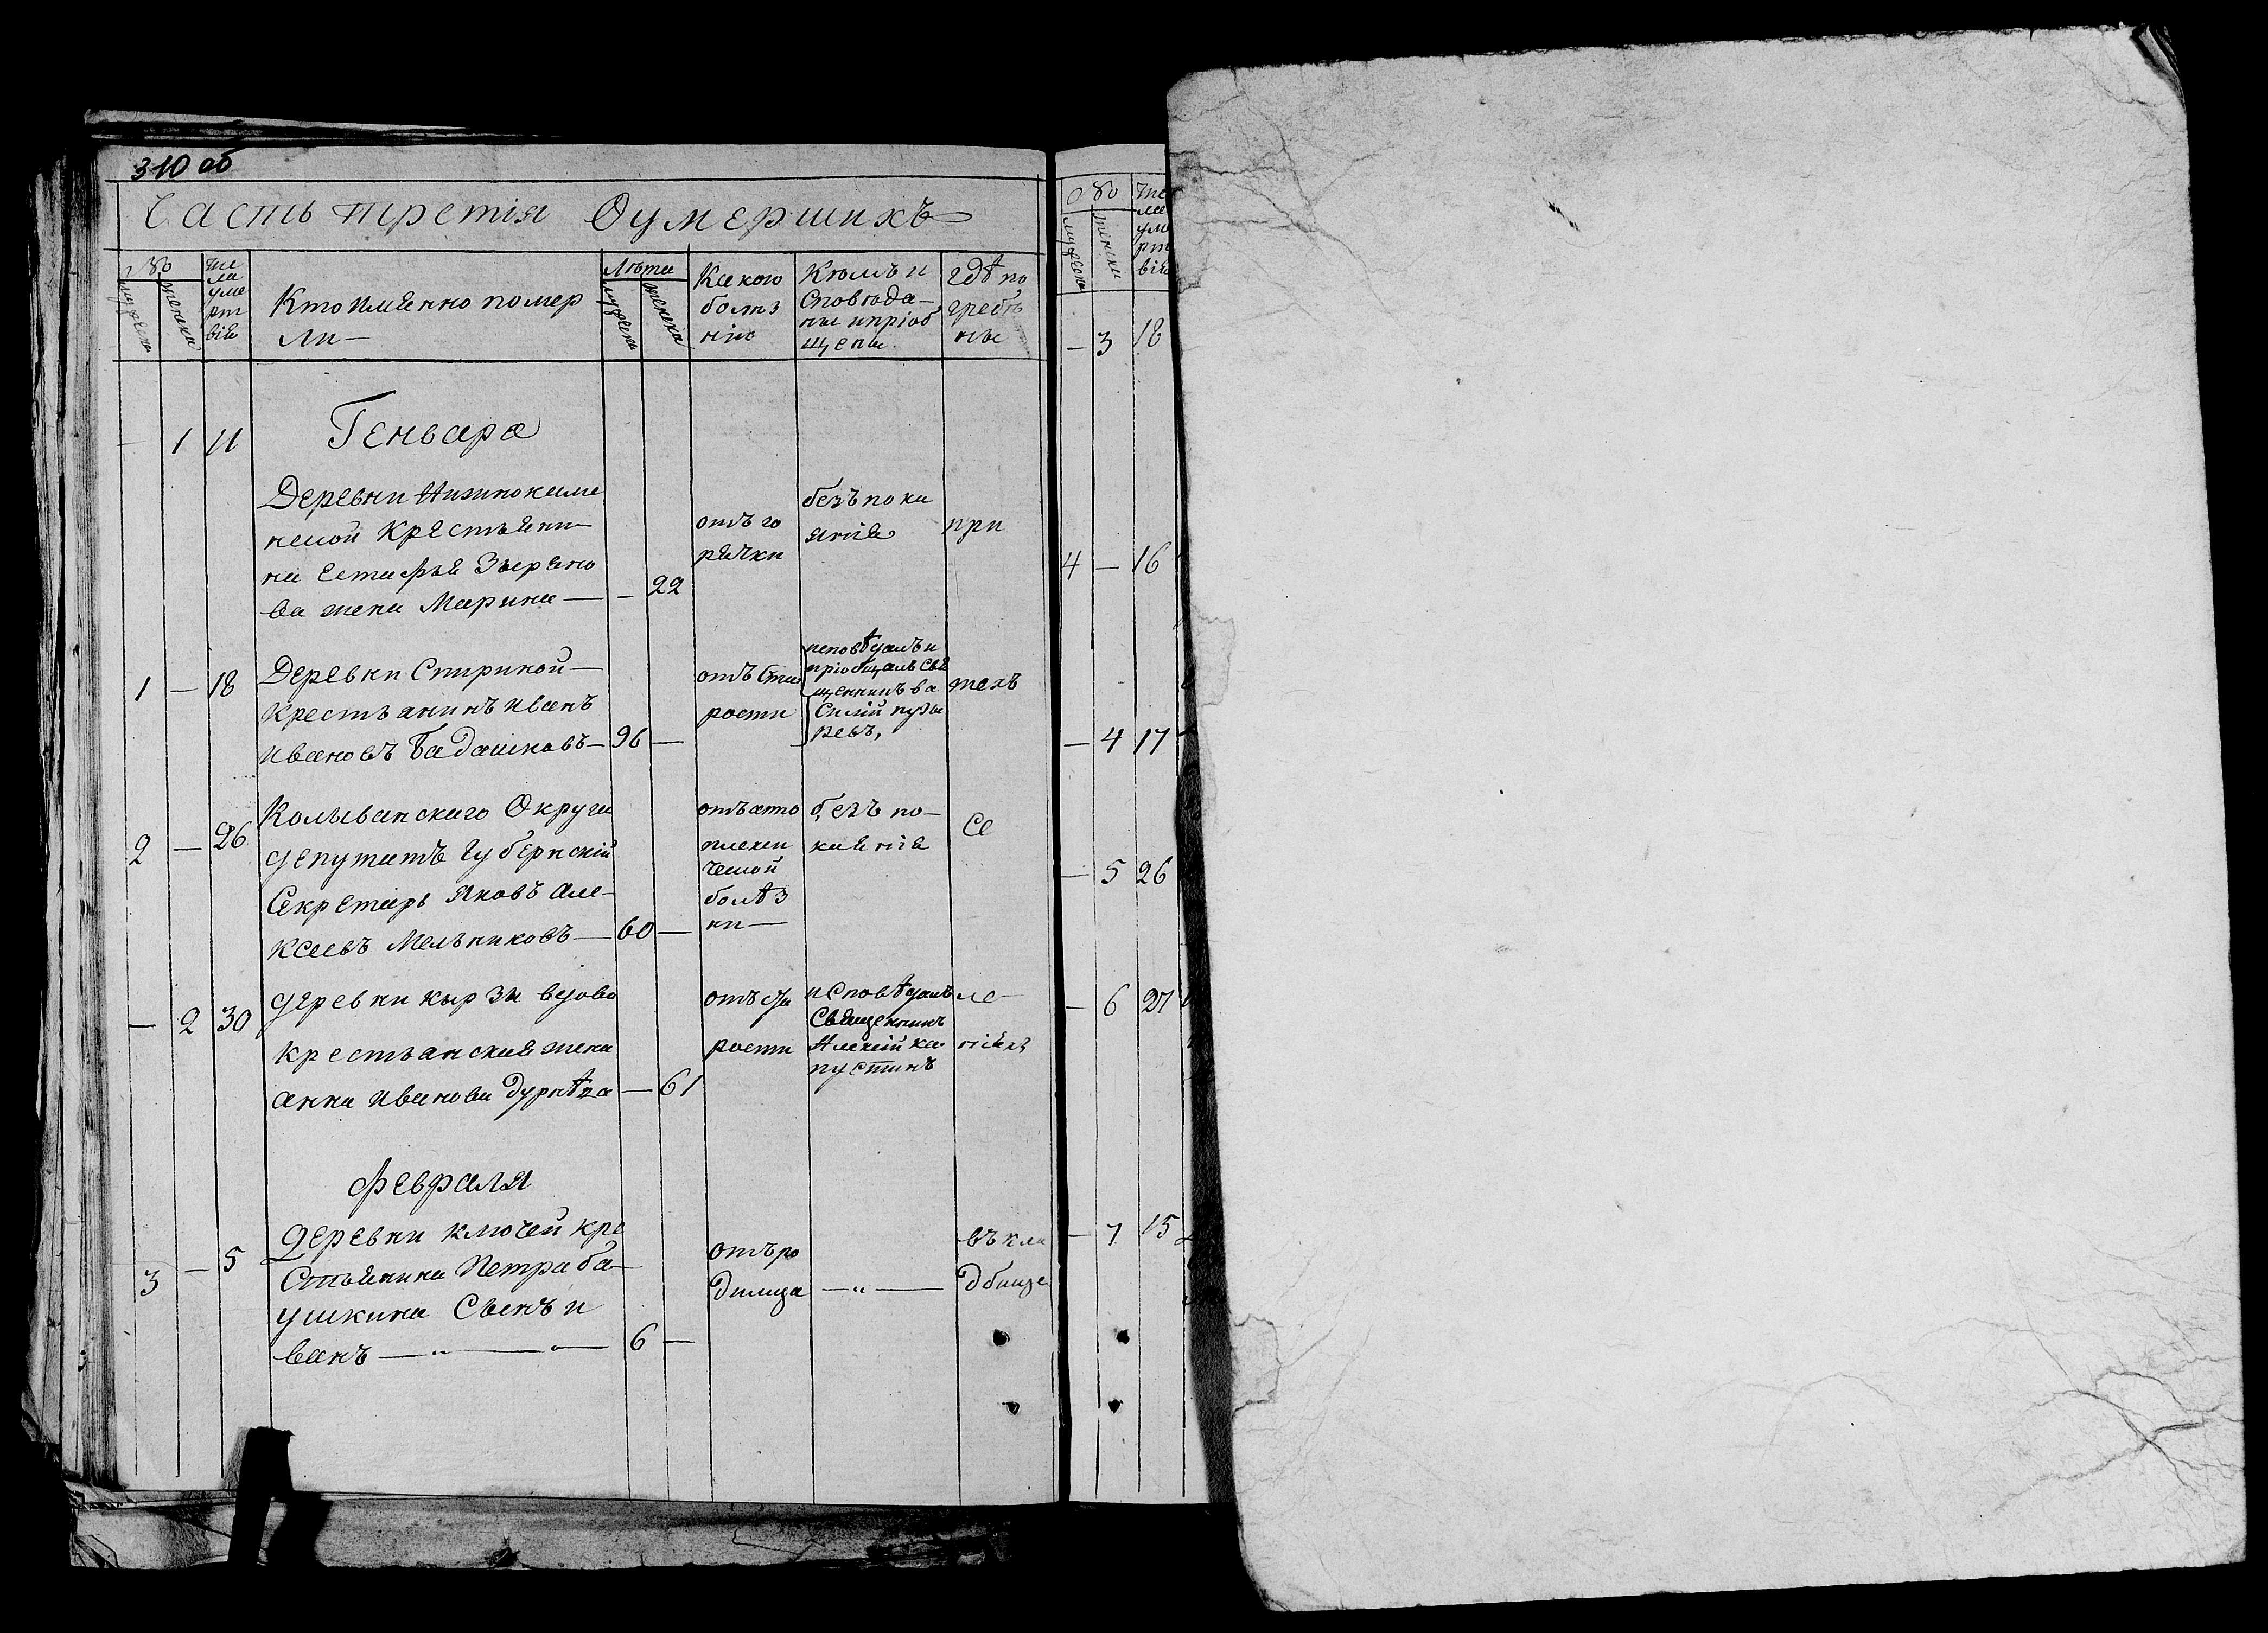 310 об
Часть третія Оумершихъ
№
мужеска
женска
чи
сла
уме
рт
вія
Кто имянно помер
ли —
Лѣта
мужеска
женска
Какою
болѣз
нію
Кѣмъ и
споведа-
ны и пріоб
щены
гдѣ по
гребѣ
ны
— 1 11 Генваря
Деревни
крестьяни-
на
ва жена Марина — — 22
отъ го
рячки
безъ пока
янія
при
1 — 18 Деревни Спириной —
крестьанинъ иванъ
ивановъ Бадашковъ — 96 —
отъ Ста
рости
исповѣдалъ и
пріобщалъ Свя
щенникъ ва
силій пузы
ревъ,
техъ
2 — 26 Колыванскаго Округа
депутатъ губернскій
Секретарь Яковъ Але-
ксеевъ Мельниковъ — 60 —
отъ апо
плекси
ческой
болѣз
ни —
безъ по-
каянія
се
— 2 30 деревни кырзы вдова
крестьанская жена
анна иванова — 61
отъ ста
рости
исповѣдалъ
Священникъ
Алексій ка
пустинъ
ле-
ніяхъ
февраля
3 — 5 Деревни ключей кре
стьянина Петра ба-
ушкина Сынъ и
ванъ — „ — „ — 6 —
отъ ро
димца
— „ —
въ кла
дбище
№
мужеска
женски
чис
ла
уме
рт
вія
— 3 18
4 — 16
— 4 17
— 5 26
— 6 27
— 7 15